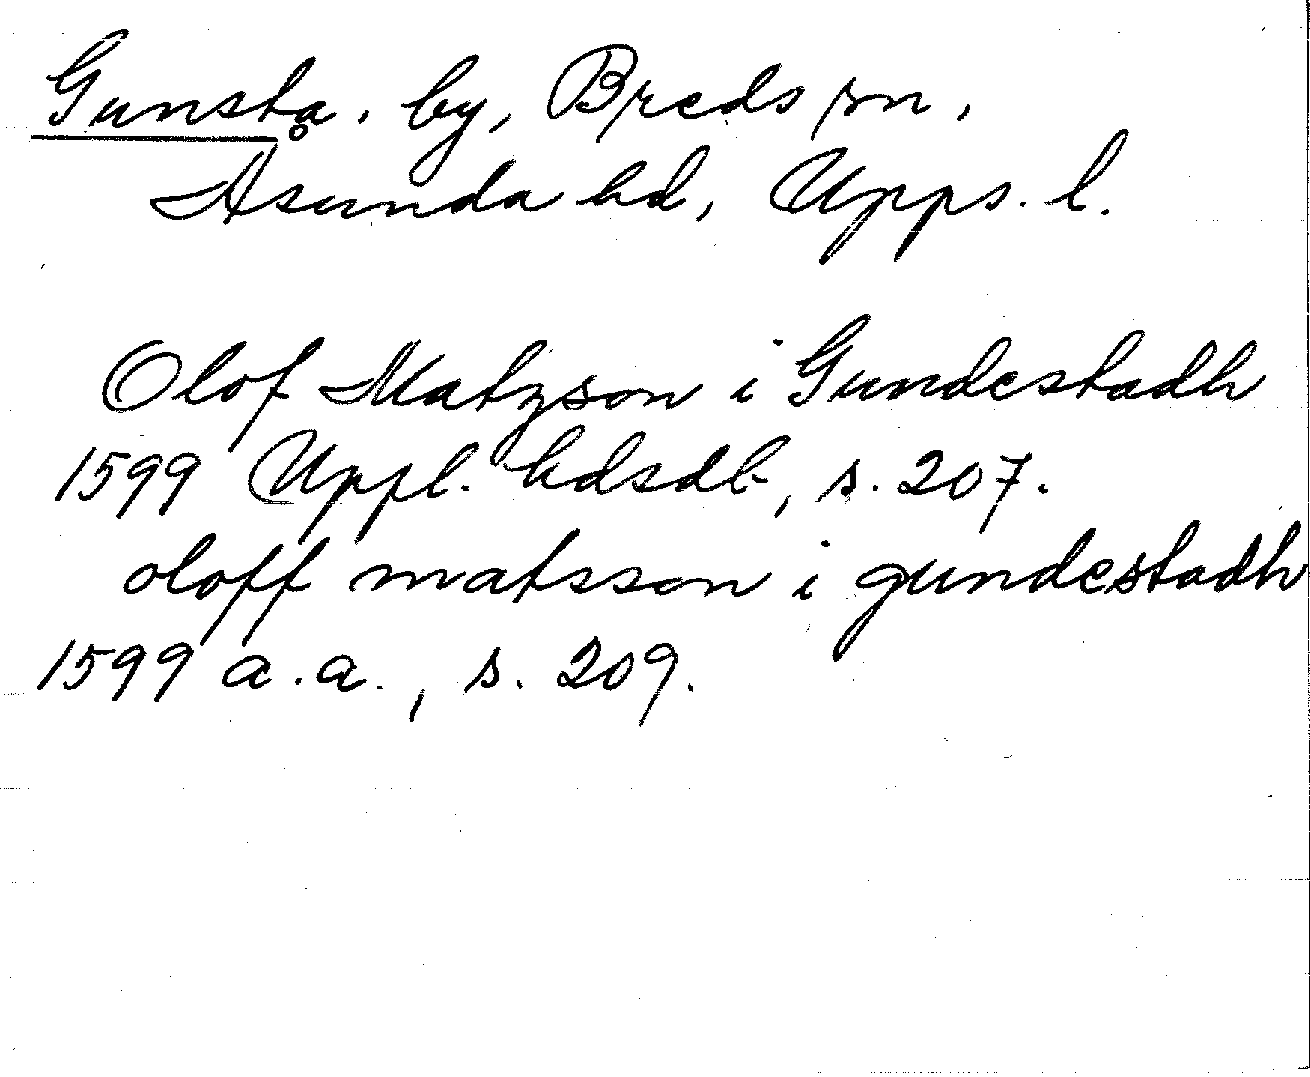 Gunsta, by, Breds sn,
Åsunda hd, Upps. l.
Olof Matzson i Gundestadh
1599 Uppl. hdsdb, s. 207.
oloff matsson i gundestadh
1599 a.a., s. 209.